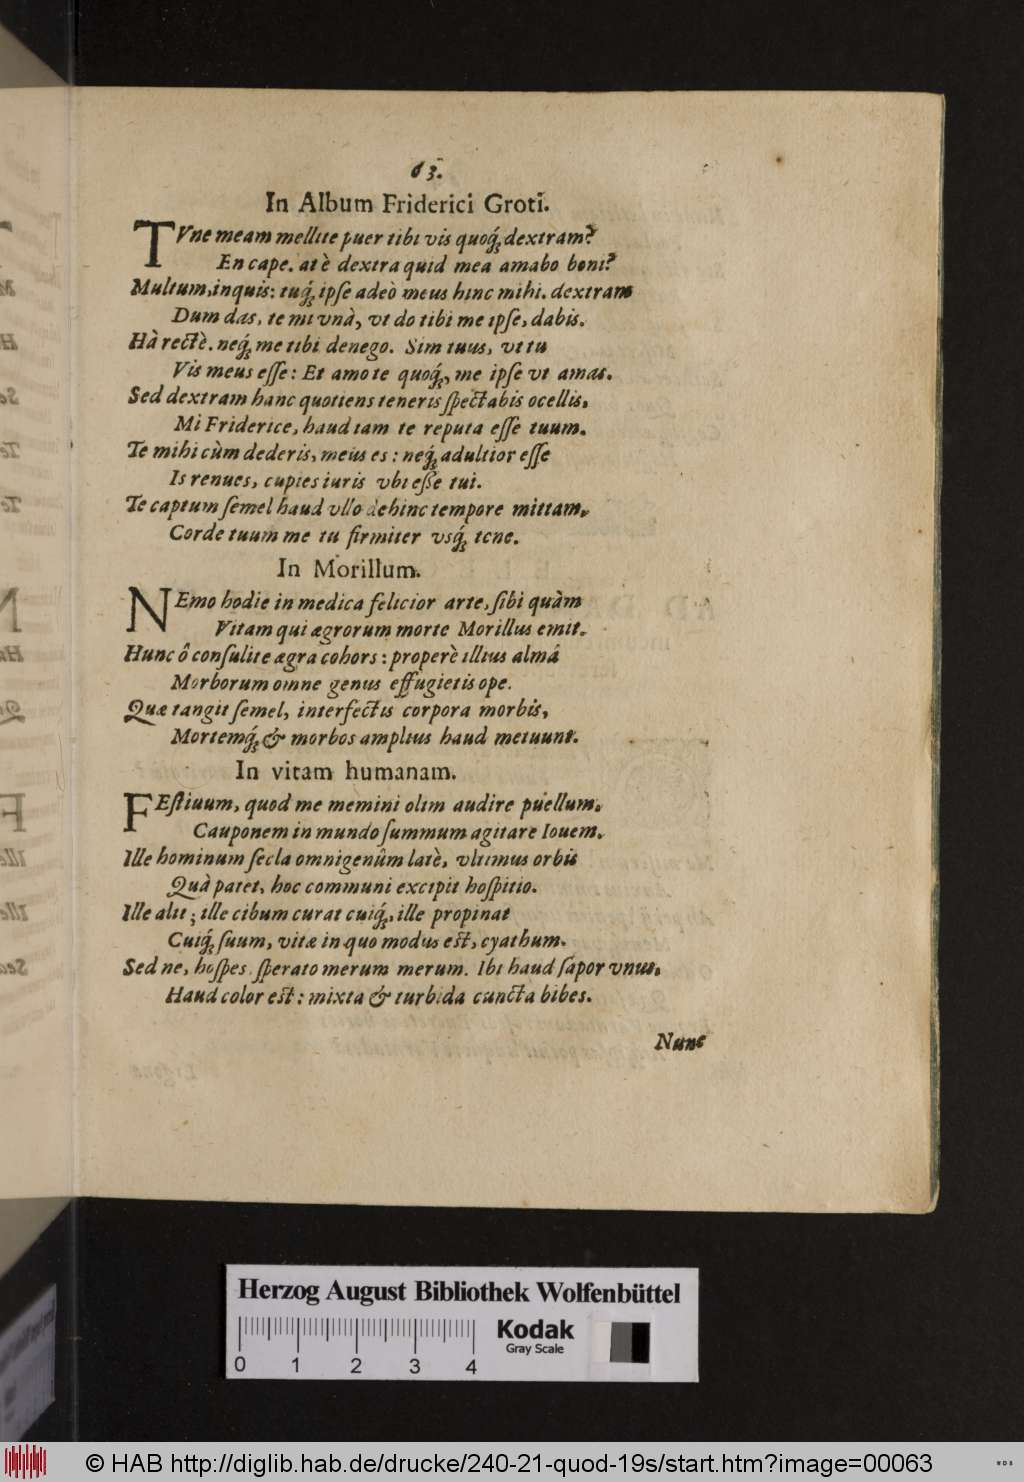 63.
In Album Friderici Groti.
TVne meam mellite puer tibi vis quoq́; dextram?
En cape. at è dextra quid mea amabo boni?
Multum, inquis: tuq́; ipſe adeò meus hinc mihi. dextram
Dum das, te mi vnà, vt do tibi me ipſe, dabis.
Hà rectè. neq́; me tibi denego. Sim tuus, vt tu
Vis meus eſſe: Et amo te quoq́;, me ipſe vt amas.
Sed dextram hanc quotiens teneris ſpectabis ocellis,
Mi Friderice, haud tam te reputa eſſe tuum.
Te mihi cùm dederis, meus es: neq́; adultior eſſe
Is renues, cupies iuris vbi eſſe tui.
Te captum ſemel haud vllo dehinc tempore mittam,
Corde tuum me tu firmiter vsq́; tene.
In Morillum.
NEmo hodie in medica felicior arte, ſibi quàm
Vitam qui ægrorum morte Morillus emit.
Hunc ô conſulite ægra cohors: properè illius almâ
Morborum omne genus effugietis ope.
Quæ tangit ſemel, interfectis corpora morbis,
Mortemq́; & morbos amplius haud metuunt.
In vitam humanam.
FEſtiuum, quod me memini olim audire puellum,
Cauponem in mundo ſummum agitare Iouem.
Ille hominum ſecla omnigenûm latè, vltimus orbis
Quà patet, hoc communi excipit hoſpitio.
Ille alit; ille cibum curat cuiq́;, ille propinat
Cuiq́; ſuum, vitæ in quo modus eſt, cyathum.
Sed ne, hoſpes. ſperato merum merum. Ibi haud ſapor vnus,
Haud color eſt: mixta & turbida cuncta bibes.
Nunc
Herzog August Bibliothek Wolfenbüttel
0 1 2 3 4
Kodak
Gray Scale
© HAB http://diglib.hab.de/drucke/240-21-quod-19s/start.htm?image=00063